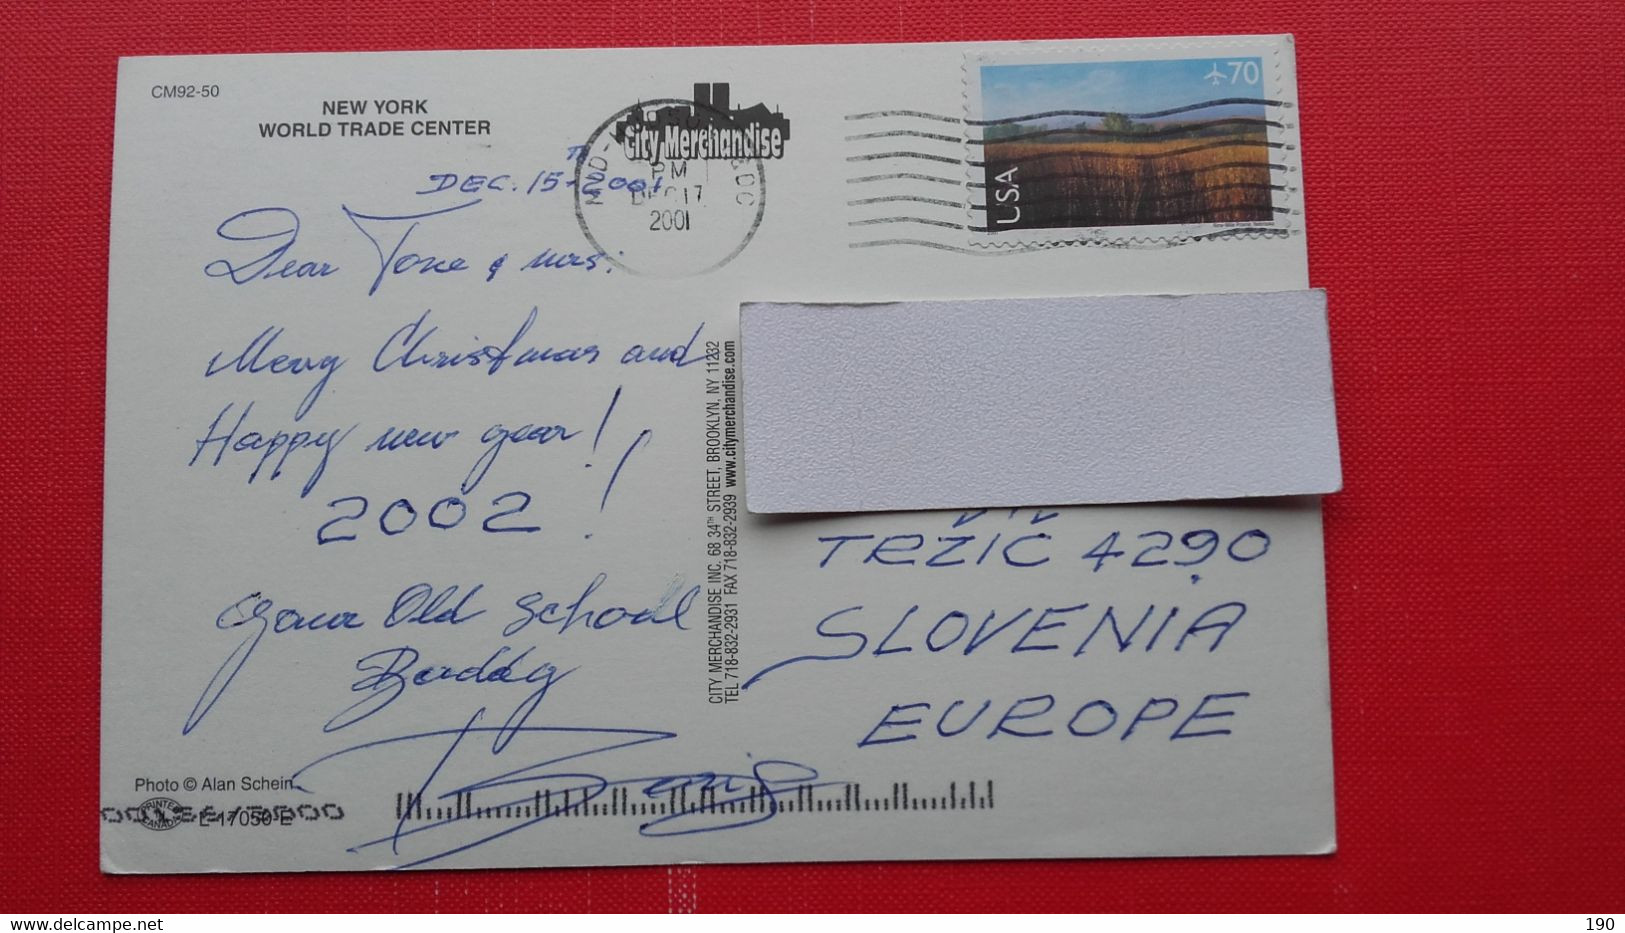 CM92-50
NEW YORK
WORLD TRADE CENTER
City Merchandise
MID-
PM
DEC 17
2001
70
USA
DEC. 15TH 2001
Dear Tone & mrs:
Merry Christmas and
Happy new year!
2002!
Your Old School
Buddy
CITY MERCHANDISE INC. 68 34TH STREET, BROOKLYN, NY 11232
TEL 718-832-2931 FAX 718-832-2939 www.citymerchandise.com
TRŽIČ 4290
SLOVENIA
EUROPE
Photo © Alan Schein
PRINTED
CANADA
L-17050-E
190